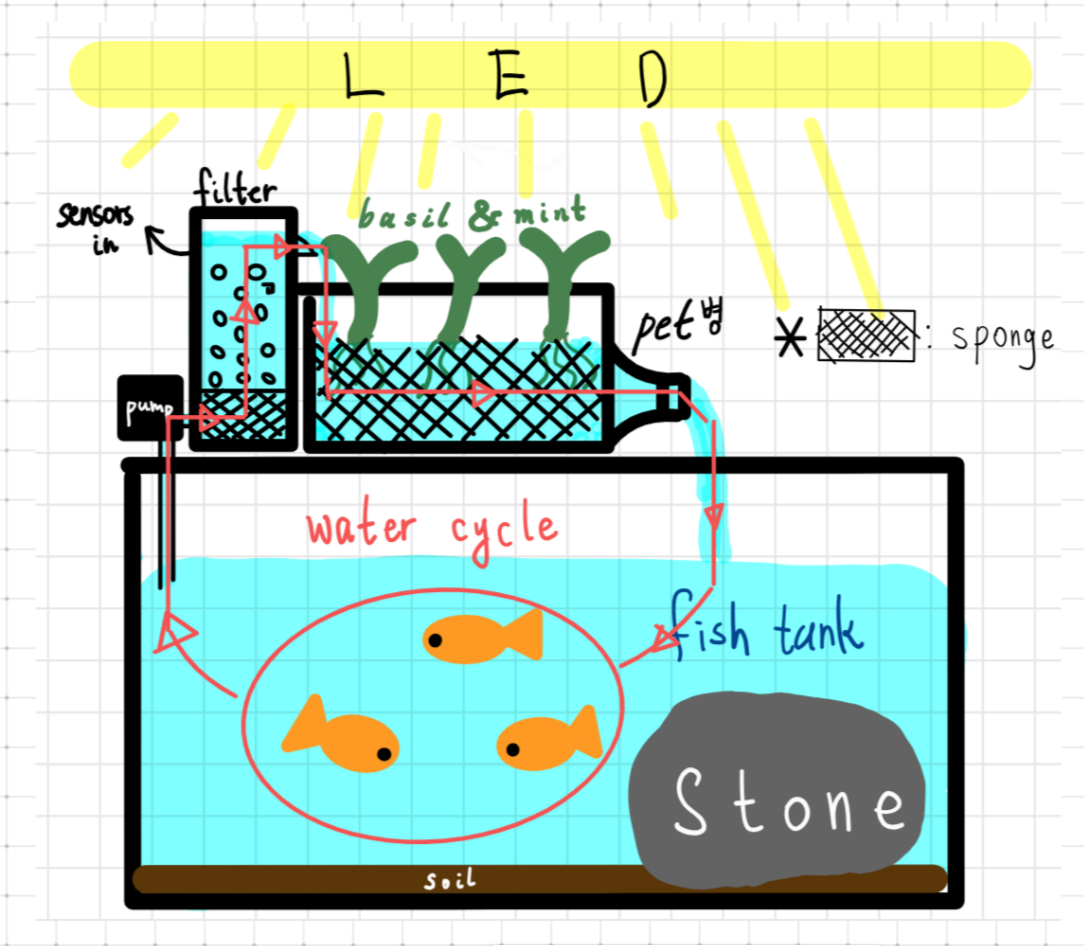 LED
filter
sensors
in
basil & mint
pet병
: sponge
pump
water cycle
fish tank
Stone
soil